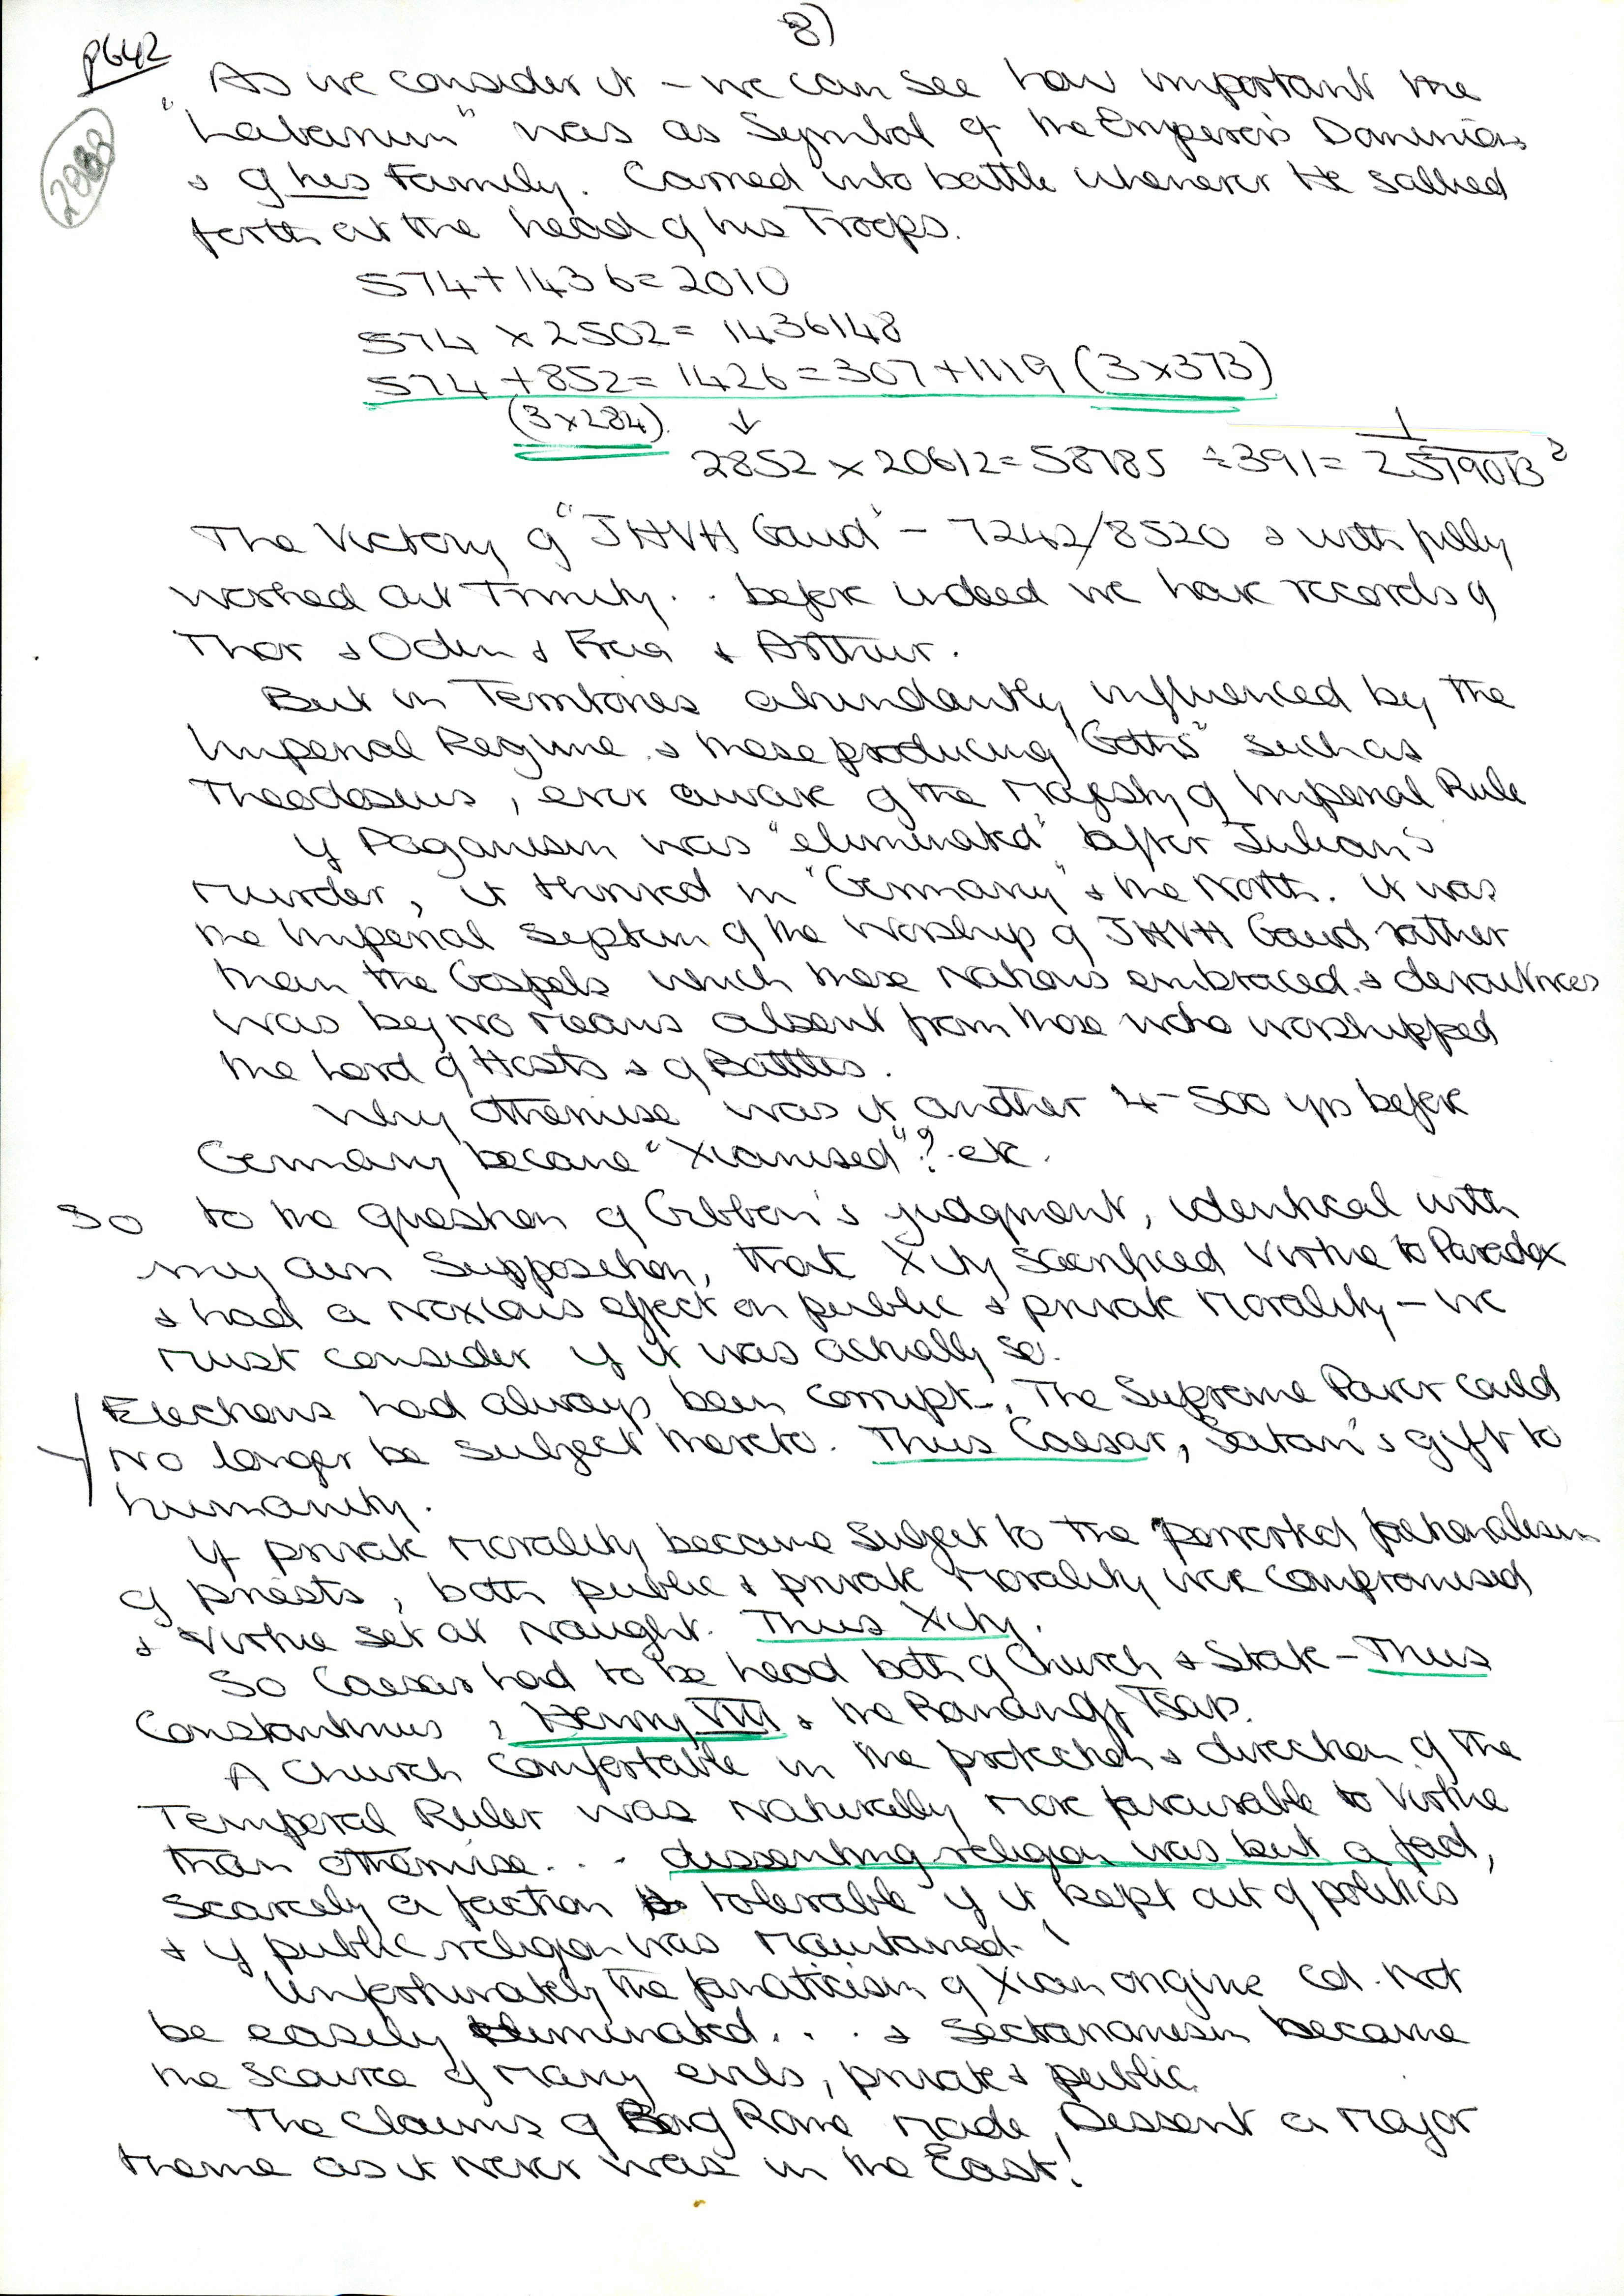 8)
p642
2988
As we consider it - we can see how important the
"Labarum" was as Symbol of the Emperor's Dominion
& of his Family. Carried into battle whenever He sallied
forth at the head of his Troops.
574+1436=2010
574 × 2502= 1436148
574 +852= 1426=307+1119 (3×373)
(3×284). ↓
2852 × 20612=58785 ÷391= 1
The Victory of "JHVH Gaud" - 7242/8520 & with fully
worked out Trinity. . before indeed we have records of
Thor & Odin & Freia & Arthur.
But in Territories abundantly influenced by the
Imperial Regime & these producing "Goths" such as
Theodosius, ever aware of the Majesty of Imperial Rule
If Paganism was "eliminated" after Julian's
Murder, it thrived in "Germany" & the North. It was
the Imperial System of the Worship of JHVH Gaud rather
than the Gospels which these Nations embraced & devoutness
was by no means absent from those who worshipped
the Lord of Hosts & of Battles.
Why otherwise was it another 4-500 yrs before
Germany became "Xianised"? etc.
So to the question of Gibbon's judgment, identical with
my own Supposition, that Xity sacrificed Virtue to Paradox
& had a Noxious effect on public & private Morality - we
Must consider if it was actually so.
Elections had always been corrupt. The Supreme Power could
No longer be subject thereto. Thus Caesar, Satan's gift to
humanity.
If private Morality became Subject to the perverted
of priests, both public & private Morality were compromised
& Virtue set at Naught. Thus Xity.
So Caesar had to be head both of Church & State - Thus
Constantinus, Henry VIII & the Romanoff Tsars.
A Church comfortable in the protection & direction of the
Temporal Ruler was Naturally More favourable to Virtue
than otherwise. . . dissenting religion was but a fad,
scarcely a faction tolerable if it kept out of politics
& if public religion was Maintained.
Unfortunately the fanaticism of Xian origine cd. Not
be easily eliminated. . . & Sectarianism became
the source of Many evils, private & public.
The Claims of Rome Made Dissent a Major
theme as it Never was in the East!